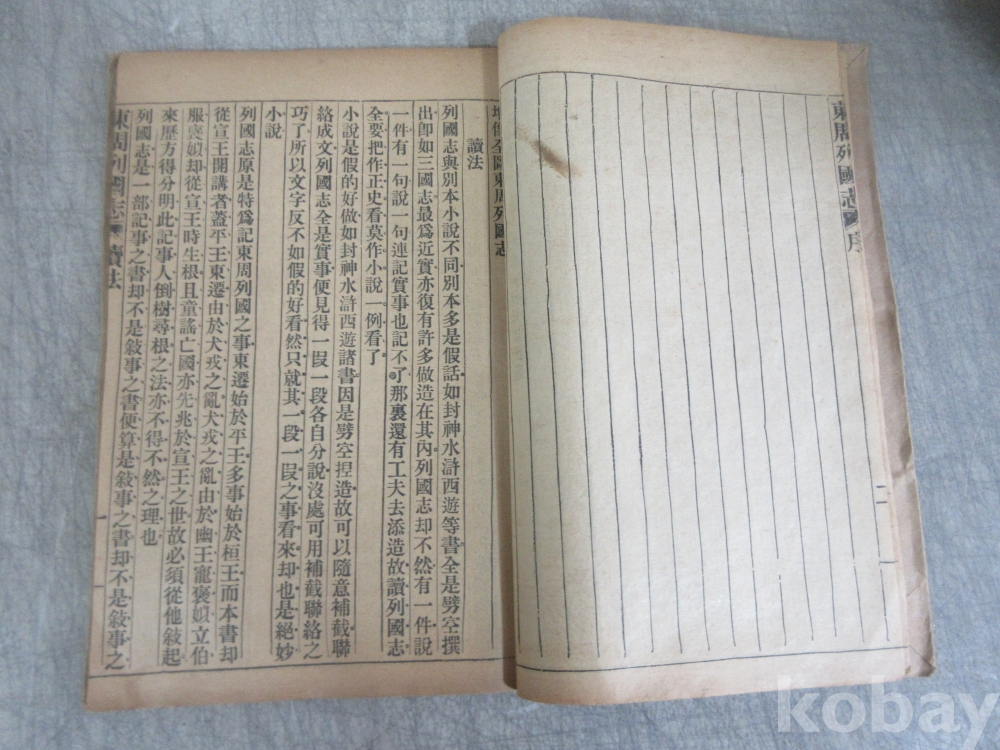 東周列國志 序
二
增像全圖東周列國志
讀法
列國志與別本小說不同別本多是假話如封神水滸西遊等書全是劈空撰
出卽如三國志最爲近實亦復有許多做造在其內列國志却不然有一件說
一件有一句說一句連記實事也記不了那裏還有工夫去添造故讀列國志
全要把作正史看莫作小說一例看了
小說是假的好做如封神水滸西遊諸書因是劈空捏造故可以隨意補截聯
絡成文列國志全是實事便見得一段一段各自分說沒處可用補截聯絡之
巧了所以文字反不如假的好看然只就其一段一段之事看來却也是絕妙
小說
列國志原是特爲記東周列國之事東遷始於平王多事始於桓王而本書却
從宣王開講者蓋平王東遷由於犬戎之亂犬戎之亂由於幽王寵褒姒立伯
服褒姒却從宣王時生根且童謠亡國亦先兆於宣王之世故必須從他敍起
來歷方得分明此記事人倒樹尋根之法亦不得不然之理也
列國志是一部記事之書却不是敍事之書便算是敍事之書却不是敍事之
東周列國志 讀法
一
kobay